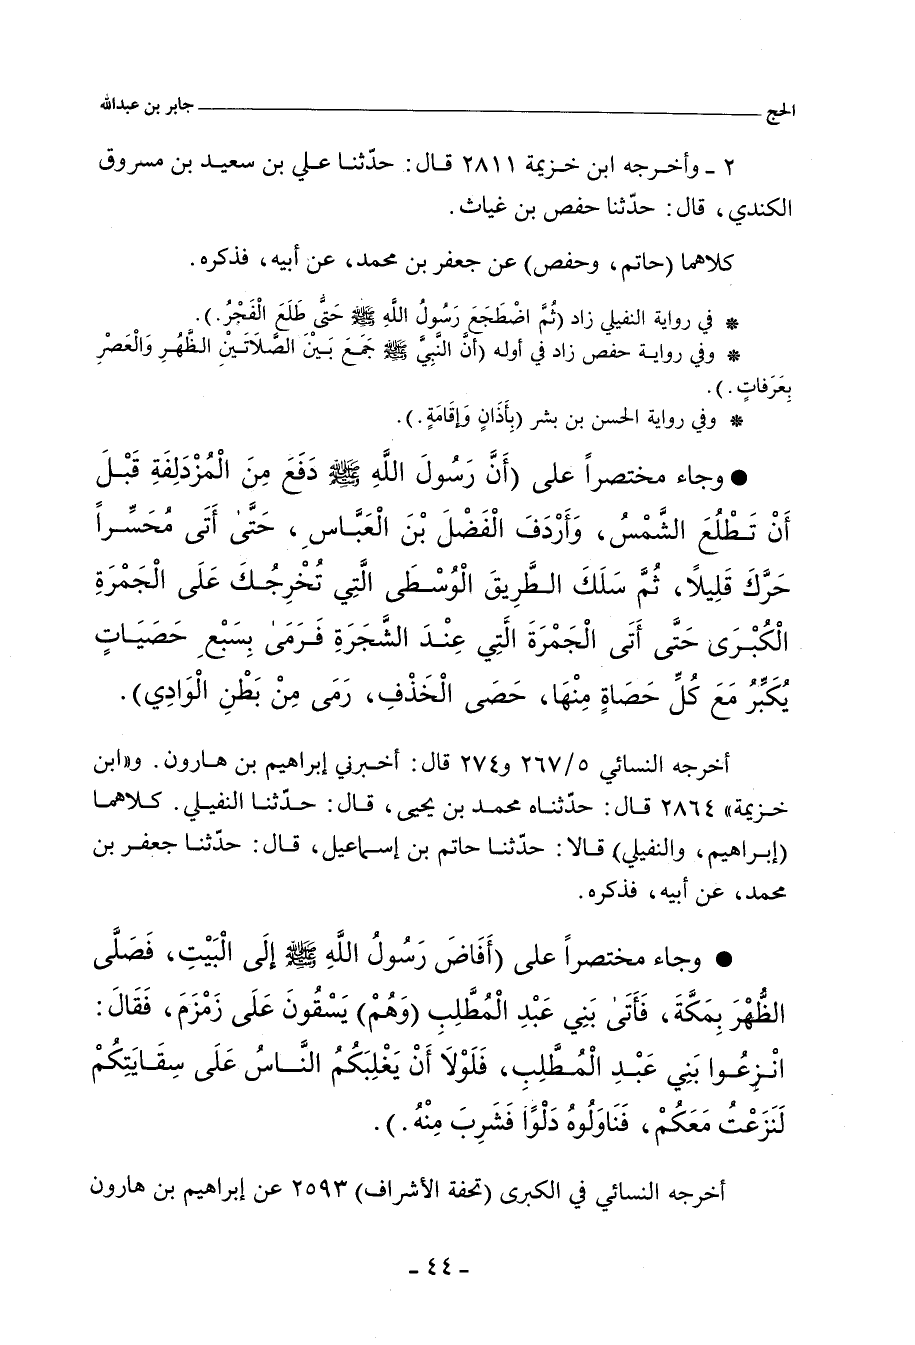 الحج ــــــــــــ جابر بن عبدالله
٢ ـ وأخرجه ابن خزيمة ٢٨١١ قال: حدّثنا علي بن سعيد بن مسروق
الكندي، قال: حدّثنا حفص بن غياث.
كلاهما (حاتم، وحفص) عن جعفر بن محمد، عن أبيه، فذكره.
* في رواية النفيلي زاد (ثُمَّ اضْطَجَعَ رَسُولُ اللَّهِ ﷺ حَتَّى طَلَعَ الْفَجْرُ.).
* وفي رواية حفص زاد في أوله (أَنَّ النَّبِيَّ ﷺ جَمَعَ بَيْنَ الصَّلَاتَيْنِ الظُّهْرِ وَالْعَصْرِ
بِعَرَفَاتٍ.).
* وفي رواية الحسن بن بشر (بِأَذَانٍ وَإِقَامَةٍ.).
● وجاء مختصراً على (أَنَّ رَسُولَ اللَّهِ ﷺ دَفَعَ مِنَ الْمُزْدَلِفَةِ قَبْلَ
أَنْ تَطْلُعَ الشَّمْسُ، وَأَرْدَفَ الْفَضْلَ بْنَ الْعَبَّاسِ، حَتَّىٰ أَتَى مُحَسِّراً
حَرَّكَ قَلِيلاً، ثُمَّ سَلَكَ الطَّرِيقَ الْوُسْطَى الَّتِي تُخْرِجُكَ عَلَى الْجَمْرَةِ
الْكُبْرَى حَتَّى أَتَى الْجَمْرَةَ الَّتِي عِنْدَ الشَّجَرَةِ فَرَمَىٰ بِسَبْعِ حَصَيَاتٍ
يُكَبِّرُ مَعَ كُلِّ حَصَاةٍ مِنْهَا، حَصَى الْخَذْفِ، رَمَى مِنْ بَطْنِ الْوَادِي).
أخرجه النسائي ٢٦٧/٥ و٢٧٤ قال: أخبرني إبراهيم بن هارون. و«ابن
خزيمة» ٢٨٦٤ قال: حدّثناه محمد بن يحيى، قال: حدّثنا النفيلي. كلاهما
(إبراهيم، والنفيلي) قالا: حدّثنا حاتم بن إسماعيل، قال: حدّثنا جعفر بن
محمد، عن أبيه، فذكره.
● وجاء مختصراً على (أَفَاضَ رَسُولُ اللَّهِ ﷺ إِلَى الْبَيْتِ، فَصَلَّى
الظُّهْرَ بِمَكَّةَ، فَأَتَىٰ بَنِي عَبْدِ الْمُطَّلِبِ (وَهُمْ) يَسْقُونَ عَلَى زَمْزَمَ، فَقَالَ:
انْزِعُوا بَنِي عَبْدِ الْمُطَّلِبِ، فَلَوْلَا أَنْ يَغْلِبَكُمُ النَّاسُ عَلَى سِقَايَتِكُمْ
لَنَزَعْتُ مَعَكُمْ، فَنَاوَلُوهُ دَلْوًا فَشَرِبَ مِنْهُ.).
أخرجه النسائي في الكبرى (تحفة الأشراف) ٢٥٩٣ عن إبراهيم بن هارون
ـ ٤٤ ـ